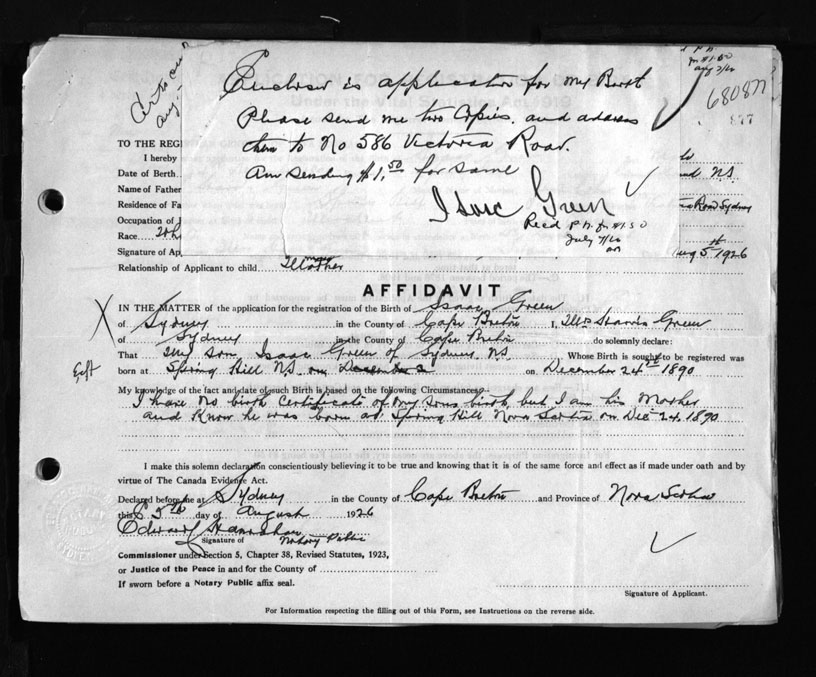 Enclosed is application for my Birth
Please send me two Copies. and address
them to No 586 Victoria Road.
Am sending $1.50 for same
Isaac Green
Recd P.N. for $1.50
July 7/26
680877
877
TO THE REGI
I hereby
Date of Birth
N.S.
Name of Father
Residence of Fa
Road Sydney
Occupation of
Race
Signature of Ap
Aug 5th 1926
Relationship of Applicant to child Mother
AFFIDAVIT
IN THE MATTER of the application for the registration of the Birth of Isaac Green
of Sydney in the County of Cape Breton I, Mrs Harris Green
of Sydney in the County of Cape Breton do solemnly declare:
That My son Isaac Green of Sydney N.S. Whose Birth is sought to be registered was
born at Spring Hill N.S. on December 24th 1890
My knowledge of the fact and date of such Birth is based on the following Circumstances
I have no birth Certificate of my sons birth, but I am his Mother
and Know he was born at Spring Hill Nova Scotia on Dec 24. 1890
I make this solemn declaration conscientiously believing it to be true and knowing that it is of the same force and effect as if made under oath and by
virtue of The Canada Evidence Act.
Declared before me at Sydney in the County of Cape Breton and Province of Nova Scotia
this 5th day of August 1926
Edward
Signature of Notary Public
Commissioner under Section 5, Chapter 38, Revised Statutes, 1923,
or Justice of the Peace in and for the County of
If sworn before a Notary Public affix seal.
Signature of Applicant.
For Information respecting the filling out of this Form, see Instructions on the reverse side.